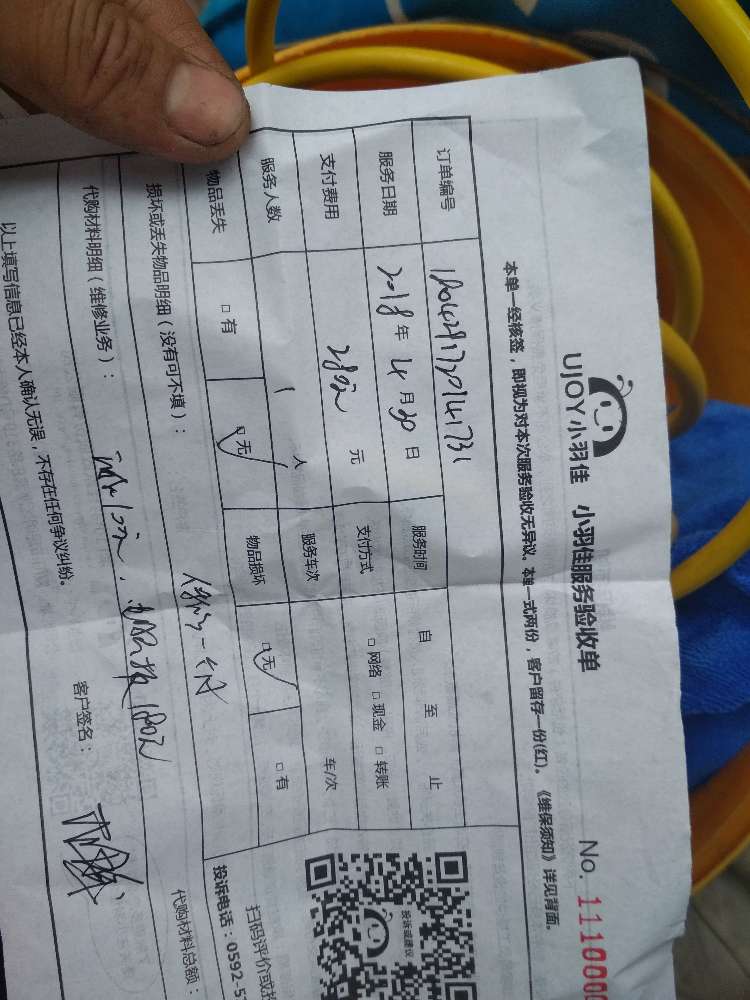 UJOY小羽佳 小羽佳服务验收单
No. 111000
本单一经核签，即视为对本次服务验收无异议，本单一式两份，客户留存一份(红)。《维保须知》详见背面。
订单编号
服务日期 2018年4月30日 服务时间 自 至 止
支付费用 280元 元 支付方式 □网络 □现金 □转账
服务人数 1 人 服务车次 车/次
物品丢失 □有 □无 物品损坏 □无 □有
损坏或丢失物品明细（没有可不填）：
代购材料明细（维修业务）：
代购材料总额：
以上填写信息已经本人确认无误，不存在任何争议纠纷。
客户签名：
投诉或建议
扫码评价或投
投诉电话：0592-5